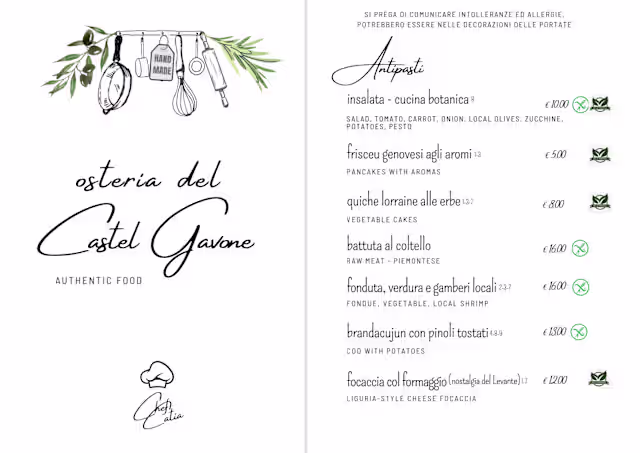 HAND
MADE
osteria del
Castel Gavone
AUTHENTIC FOOD
Chef
Catia
SI PREGA DI COMUNICARE INTOLLERANZE ED ALLERGIE,
POTREBBERO ESSERE NELLE DECORAZIONI DELLE PORTATE
Antipasti
insalata - cucina botanica 9 € 10.00
SALAD, TOMATO, CARROT, ONION, LOCAL OLIVES, ZUCCHINE,
POTATOES, PESTO
frisceu genovesi agli aromi 1.3 € 5.00
PANCAKES WITH AROMAS
quiche lorraine alle erbe 1.3.7 € 8.00
VEGETABLE CAKES
battuta al coltello € 16.00
RAW MEAT - PIEMONTESE
fonduta, verdura e gamberi locali 2.3.7 € 16.00
FONDUE, VEGETABLE, LOCAL SHRIMP
brandacujun con pinoli tostati 4.8.9 € 13.00
COD WITH POTATOES
focaccia col formaggio (nostalgia del Levante) 1.7 € 12.00
LIGURIA-STYLE CHEESE FOCACCIA